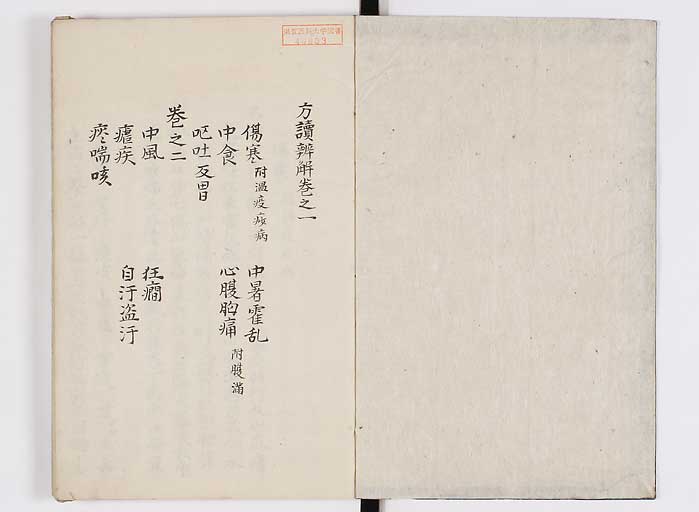 方讀辨解巻之一
傷寒附温疫痎病 中暑霍乱
中食 心腹胸痛附腹滿
呕吐反胃
巻之二
中風 狂癇
瘧疾 自汗盗汗
痰喘咳